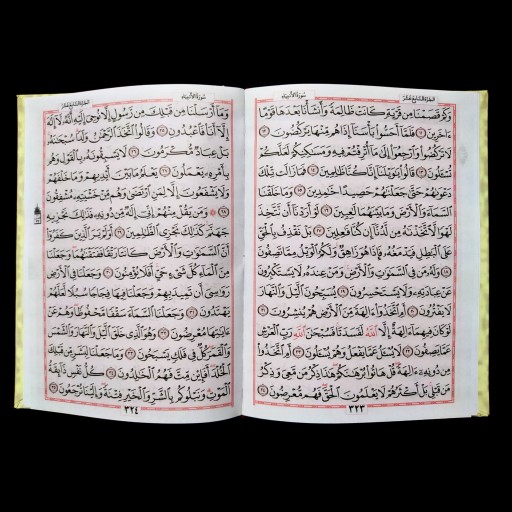 سُورَةُ الأَنبِيَاءِ
الجُزْءُ السَّابِعَ عَشَرَ
وَكَمْ قَصَمْنَا مِن قَرْيَةٍ كَانَتْ ظَالِمَةً وَأَنشَأْنَا بَعْدَهَا قَوْمًا
ءَاخَرِينَ ١١ فَلَمَّآ أَحَسُّوا۟ بَأْسَنَآ إِذَا هُم مِّنْهَا يَرْكُضُونَ ١٢
لَا تَرْكُضُوا۟ وَٱرْجِعُوٓا۟ إِلَىٰ مَآ أُتْرِفْتُمْ فِيهِ وَمَسَٰكِنِكُمْ لَعَلَّكُمْ
تُسْـَٔلُونَ ١٣ قَالُوا۟ يَٰوَيْلَنَآ إِنَّا كُنَّا ظَٰلِمِينَ ١٤ فَمَا زَالَت تِّلْكَ
دَعْوَىٰهُمْ حَتَّىٰ جَعَلْنَٰهُمْ حَصِيدًا خَٰمِدِينَ ١٥ وَمَا خَلَقْنَا
ٱلسَّمَآءَ وَٱلْأَرْضَ وَمَا بَيْنَهُمَا لَٰعِبِينَ ١٦ لَوْ أَرَدْنَآ أَن نَّتَّخِذَ
لَهْوًا لَّٱتَّخَذْنَٰهُ مِن لَّدُنَّآ إِن كُنَّا فَٰعِلِينَ ١٧ بَلْ نَقْذِفُ بِٱلْحَقِّ
عَلَى ٱلْبَٰطِلِ فَيَدْمَغُهُۥ فَإِذَا هُوَ زَاهِقٌ وَلَكُمُ ٱلْوَيْلُ مِمَّا تَصِفُونَ
١٨ وَلَهُۥ مَن فِى ٱلسَّمَٰوَٰتِ وَٱلْأَرْضِ وَمَنْ عِندَهُۥ لَا يَسْتَكْبِرُونَ
عَنْ عِبَادَتِهِۦ وَلَا يَسْتَحْسِرُونَ ١٩ يُسَبِّحُونَ ٱلَّيْلَ وَٱلنَّهَارَ
لَا يَفْتُرُونَ ٢٠ أَمِ ٱتَّخَذُوٓا۟ ءَالِهَةً مِّنَ ٱلْأَرْضِ هُمْ يُنشِرُونَ ٢١
لَوْ كَانَ فِيهِمَآ ءَالِهَةٌ إِلَّا ٱللَّهُ لَفَسَدَتَا فَسُبْحَٰنَ ٱللَّهِ رَبِّ ٱلْعَرْشِ
عَمَّا يَصِفُونَ ٢٢ لَا يُسْـَٔلُ عَمَّا يَفْعَلُ وَهُمْ يُسْـَٔلُونَ ٢٣ أَمِ ٱتَّخَذُوا۟
مِن دُونِهِۦٓ ءَالِهَةً قُلْ هَاتُوا۟ بُرْهَٰنَكُمْ هَٰذَا ذِكْرُ مَن مَّعِىَ وَذِكْرُ
مَن قَبْلِى بَلْ أَكْثَرُهُمْ لَا يَعْلَمُونَ ٱلْحَقَّ فَهُم مُّعْرِضُونَ ٢٤
٣٢٣
الجُزْءُ السَّابِعَ عَشَرَ
سُورَةُ الأَنبِيَاءِ
وَمَآ أَرْسَلْنَا مِن قَبْلِكَ مِن رَّسُولٍ إِلَّا نُوحِىٓ إِلَيْهِ أَنَّهُۥ لَآ إِلَٰهَ
إِلَّآ أَنَا۠ فَٱعْبُدُونِ ٢٥ وَقَالُوا۟ ٱتَّخَذَ ٱلرَّحْمَٰنُ وَلَدًا سُبْحَٰنَهُۥ
بَلْ عِبَادٌ مُّكْرَمُونَ ٢٦ لَا يَسْبِقُونَهُۥ بِٱلْقَوْلِ وَهُم
بِأَمْرِهِۦ يَعْمَلُونَ ٢٧ يَعْلَمُ مَا بَيْنَ أَيْدِيهِمْ وَمَا خَلْفَهُمْ
وَلَا يَشْفَعُونَ إِلَّا لِمَنِ ٱرْتَضَىٰ وَهُم مِّنْ خَشْيَتِهِۦ مُشْفِقُونَ
٢٨ وَمَن يَقُلْ مِنْهُمْ إِنِّىٓ إِلَٰهٌ مِّن دُونِهِۦ فَذَٰلِكَ نَجْزِيهِ
جَهَنَّمَ كَذَٰلِكَ نَجْزِى ٱلظَّٰلِمِينَ ٢٩ أَوَلَمْ يَرَ ٱلَّذِينَ كَفَرُوٓا۟
أَنَّ ٱلسَّمَٰوَٰتِ وَٱلْأَرْضَ كَانَتَا رَتْقًا فَفَتَقْنَٰهُمَا وَجَعَلْنَا
مِنَ ٱلْمَآءِ كُلَّ شَىْءٍ حَىٍّ أَفَلَا يُؤْمِنُونَ ٣٠ وَجَعَلْنَا فِى ٱلْأَرْضِ
رَوَٰسِىَ أَن تَمِيدَ بِهِمْ وَجَعَلْنَا فِيهَا فِجَاجًا سُبُلًا لَّعَلَّهُمْ
يَهْتَدُونَ ٣١ وَجَعَلْنَا ٱلسَّمَآءَ سَقْفًا مَّحْفُوظًا وَهُمْ عَنْ
ءَايَٰتِهَا مُعْرِضُونَ ٣٢ وَهُوَ ٱلَّذِى خَلَقَ ٱلَّيْلَ وَٱلنَّهَارَ وَٱلشَّمْسَ
وَٱلْقَمَرَ كُلٌّ فِى فَلَكٍ يَسْبَحُونَ ٣٣ وَمَا جَعَلْنَا لِبَشَرٍ مِّن قَبْلِكَ
ٱلْخُلْدَ أَفَإِي۟ن مِّتَّ فَهُمُ ٱلْخَٰلِدُونَ ٣٤ كُلُّ نَفْسٍ ذَآئِقَةُ
ٱلْمَوْتِ وَنَبْلُوكُم بِٱلشَّرِّ وَٱلْخَيْرِ فِتْنَةً وَإِلَيْنَا تُرْجَعُونَ ٣٥
٣٢٤